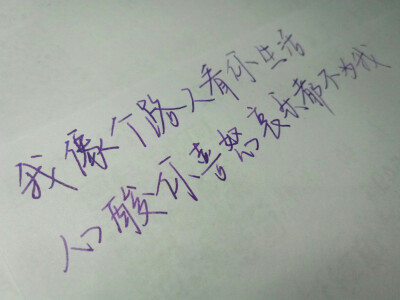 我像个路人看你生活
心酸你喜怒哀乐都不为我